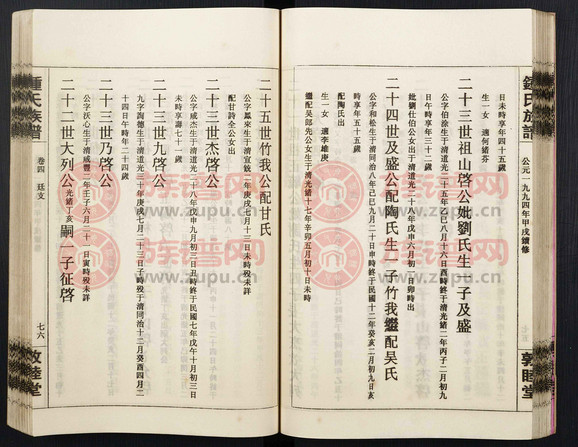 鍾氏族譜
公元一九九四年甲戌續修
敦睦堂
日未時享年四十五歲
生一女 適何緒芬
二十三世祖山啓公妣劉氏生一子及盛
公字伯徐生于清道光二十五年乙巳八月十六日酉時終于清光緒二年丙子二月初九
日午時享年三十二歲
妣劉仕伯公女生于清道光二十八年戊申六月初一日卯時出
二十四世及盛公配陶氏生一子竹我繼配吴氏
公字和松生于清同治八年己巳九月二十日申時終于民國十二年癸亥二月初九日亥
時享年五十五歲
配陶氏出
生一女 適李庚
繼配吴郎先公女生于清光緒十七年辛卯五月初十日未時
二十五世竹我公配甘氏
公字鳳來生于清宣統二年庚戌七月十三日未時殁未詳
配甘詩全公女出
二十三世杰啓公
公字咸杰生于清道光二十八年戊申九月初三日丑時終于民國七年戊午十月初三日
未時享壽七十一歲
二十三世九啓公
九字詢德生于清道光三十年庚戌七月二十三日子時殁于清同治十二月癸酉四月二
十四日午時年二十四歲
二十三世乃啓公
公字沃心生于清咸豐二年壬子六月二十一日寅時殁未詳
二十二世大列公光緒丁亥嗣一子征啓
鍾氏族譜
卷四 廷支
七六
敦睦堂
族谱网
www.zupu.cn